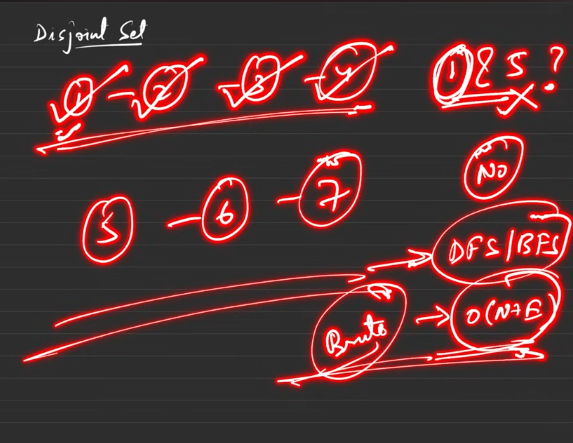 Disjoint Set
1 - 2 - 3 - 4 1 & 5 ?
No
5 - 6 - 7
DFS/BFS
Brute → O(N+E)